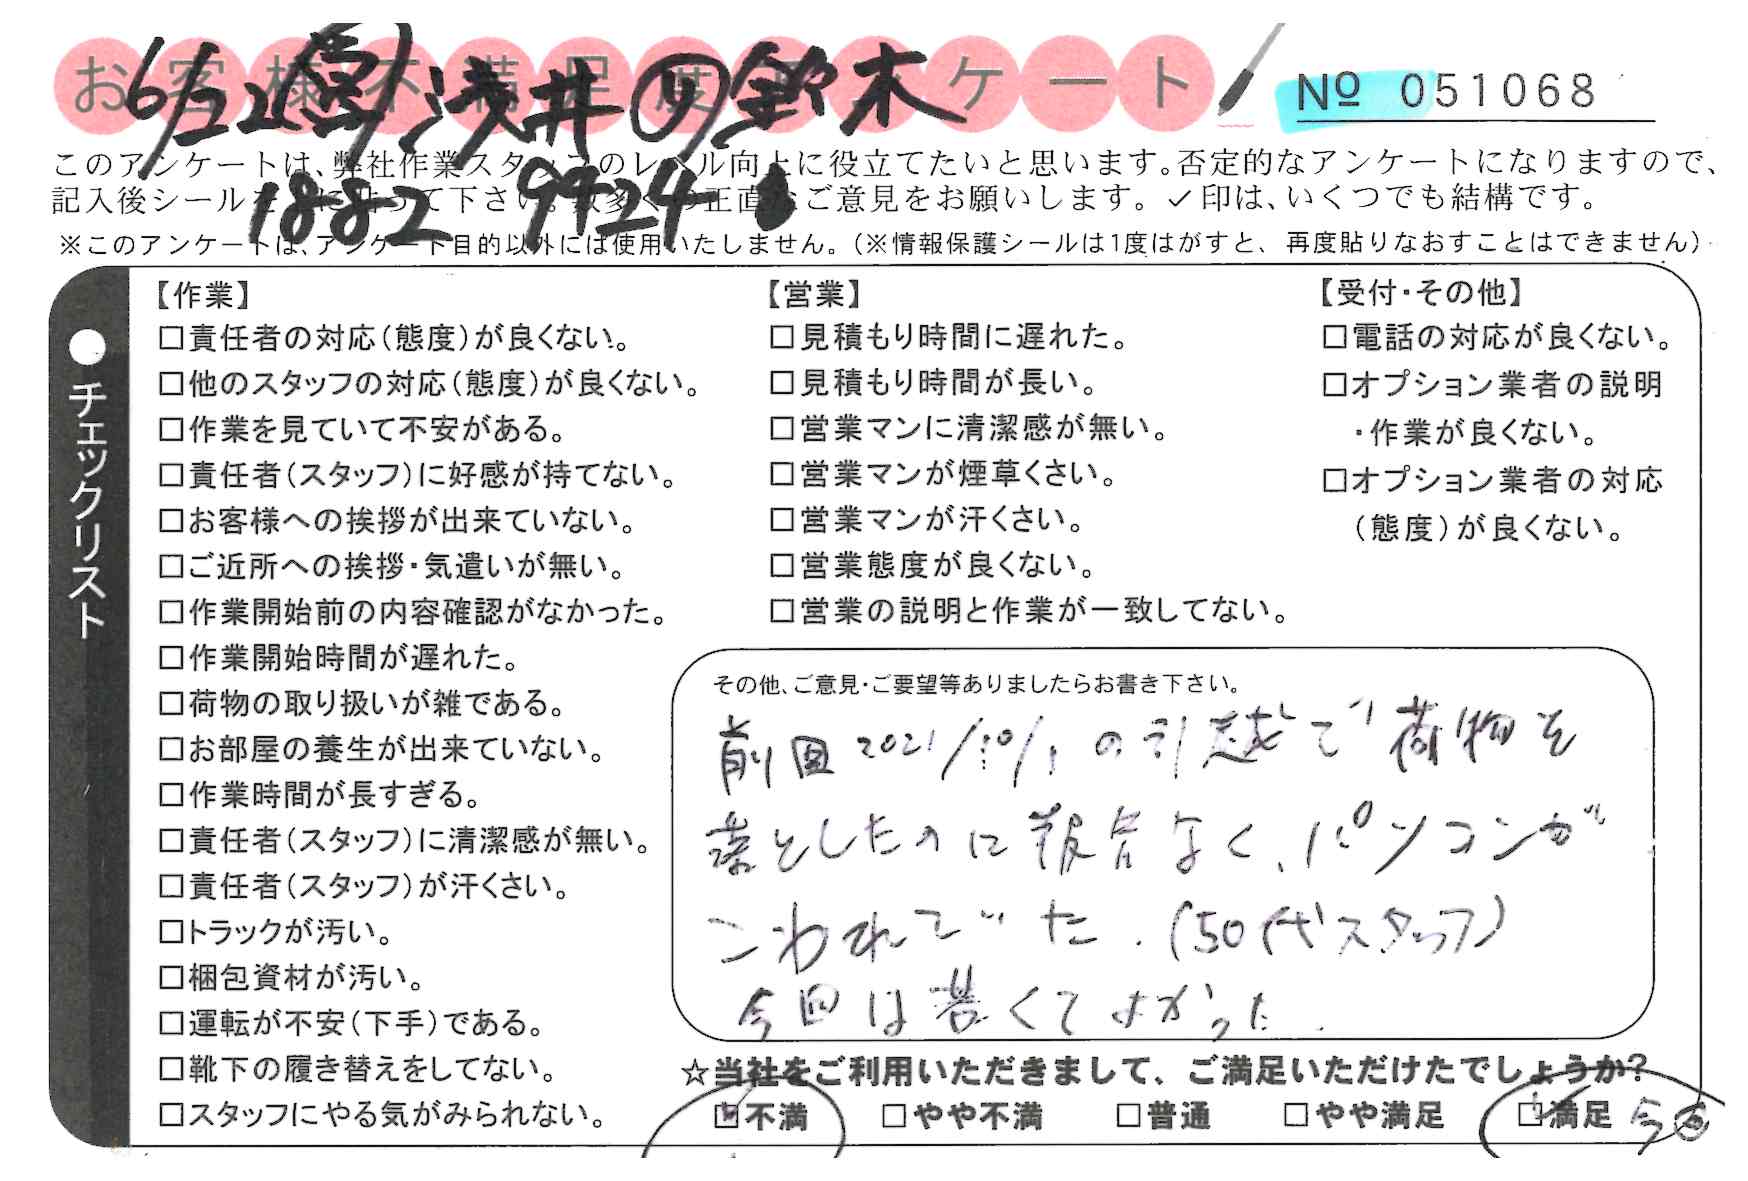 お客様不満足度アンケート
6/22 浅井 鈴木
1882 9424
Nº 051068
このアンケートは、弊社作業スタッフのレベル向上に役立てたいと思います。否定的なアンケートになりますので、
記入後シールを 下さい。 正直なご意見をお願いします。✓印は、いくつでも結構です。
※このアンケートは、アンケート目的以外には使用いたしません。(※情報保護シールは1度はがすと、再度貼りなおすことはできません)
●チェックリスト
【作業】
□責任者の対応(態度)が良くない。
□他のスタッフの対応(態度)が良くない。
□作業を見ていて不安がある。
□責任者(スタッフ)に好感が持てない。
□お客様への挨拶が出来ていない。
□ご近所への挨拶・気遣いが無い。
□作業開始前の内容確認がなかった。
□作業開始時間が遅れた。
□荷物の取り扱いが雑である。
□お部屋の養生が出来ていない。
□作業時間が長すぎる。
□責任者(スタッフ)に清潔感が無い。
□責任者(スタッフ)が汗くさい。
□トラックが汚い。
□梱包資材が汚い。
□運転が不安(下手)である。
□靴下の履き替えをしてない。
□スタッフにやる気がみられない。
【営業】
□見積もり時間に遅れた。
□見積もり時間が長い。
□営業マンに清潔感が無い。
□営業マンが煙草くさい。
□営業マンが汗くさい。
□営業態度が良くない。
□営業の説明と作業が一致してない。
【受付・その他】
□電話の対応が良くない。
□オプション業者の説明
・作業が良くない。
□オプション業者の対応
(態度)が良くない。
その他、ご意見・ご要望等ありましたらお書き下さい。
前回2021/10/1の引越で荷物を
落としたのに報告なく、パソコンが
こわれてた。(50代スタッフ)
今回は若くてよかった.
☆当社をご利用いただきまして、ご満足いただけたでしょうか?
☑不満 □やや不満 □普通 □やや満足 ☑満足 今回